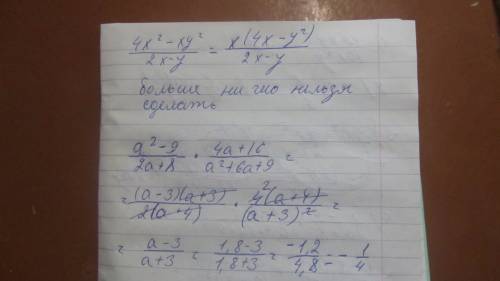 (4x² - xy²)/(2x-y) = x(4x-y²)/(2x-y)
больше ни что нельзя
сделать
(a²-9)/(2a+8) · (4a+16)/(a²+6a+9) =
= (a-3)(a+3)/2(a+4) · 4²(a+4)/(a+3)² =
= (a-3)/(a+3) = (1,8-3)/(1,8+3) = -1,2/4,8 = - 1/4